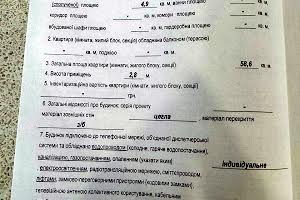 (сполучено) площею 4,9 кв. м, ванни площею
коридор площею - кв. м, комори площею -
вбудованої шафи площею - кв. м, поддоробна площею
2. Квартира (кімната, житлий блок, секція) обладнана балконом (терасою)
- кв. м, лоджією - кв. м.
3. Загальна площа квартири (кімнати, жилого блоку, секції) 58,6 кв. м.
4. Висота приміщень 2,8 м.
5. Інвентаризаційна вартість квартири (кімнати, жилого блоку, секції)
- грн.
6. Загальні відомості про будинок: серія проекту
матеріал зовнішніх стін цегла, матеріал перекриття
з/б
7. Будинок підключено до телефонної мережі, об'єднаної диспетчерської
системи та обладнано водопроводом (холодне, гаряче водопостачання),
каналізацією, газопостачанням, опаленням (указати яким) індивідуальне
електроосвітленням, радіотрансляційною мережею, сміттєпроводом,
ліфтами, замково-переговорними пристроями (кодовими замками),
телевізійною антеною колективного користування, кабельним